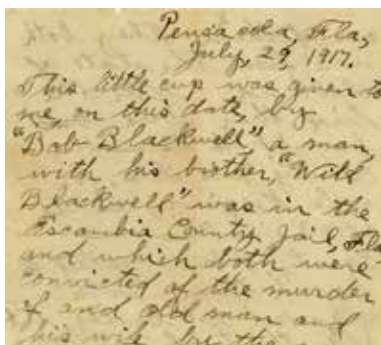 Pensacola, Fla,
July, 29, 1917.
This little cup was given to
me, on this date, by
"Bob Blackwell," a man,
with his brother, "Will
Blackwell" was in the
Escambia County Jail, Fla
and which both were
convicted of the murder
of and old man and
his wife for the